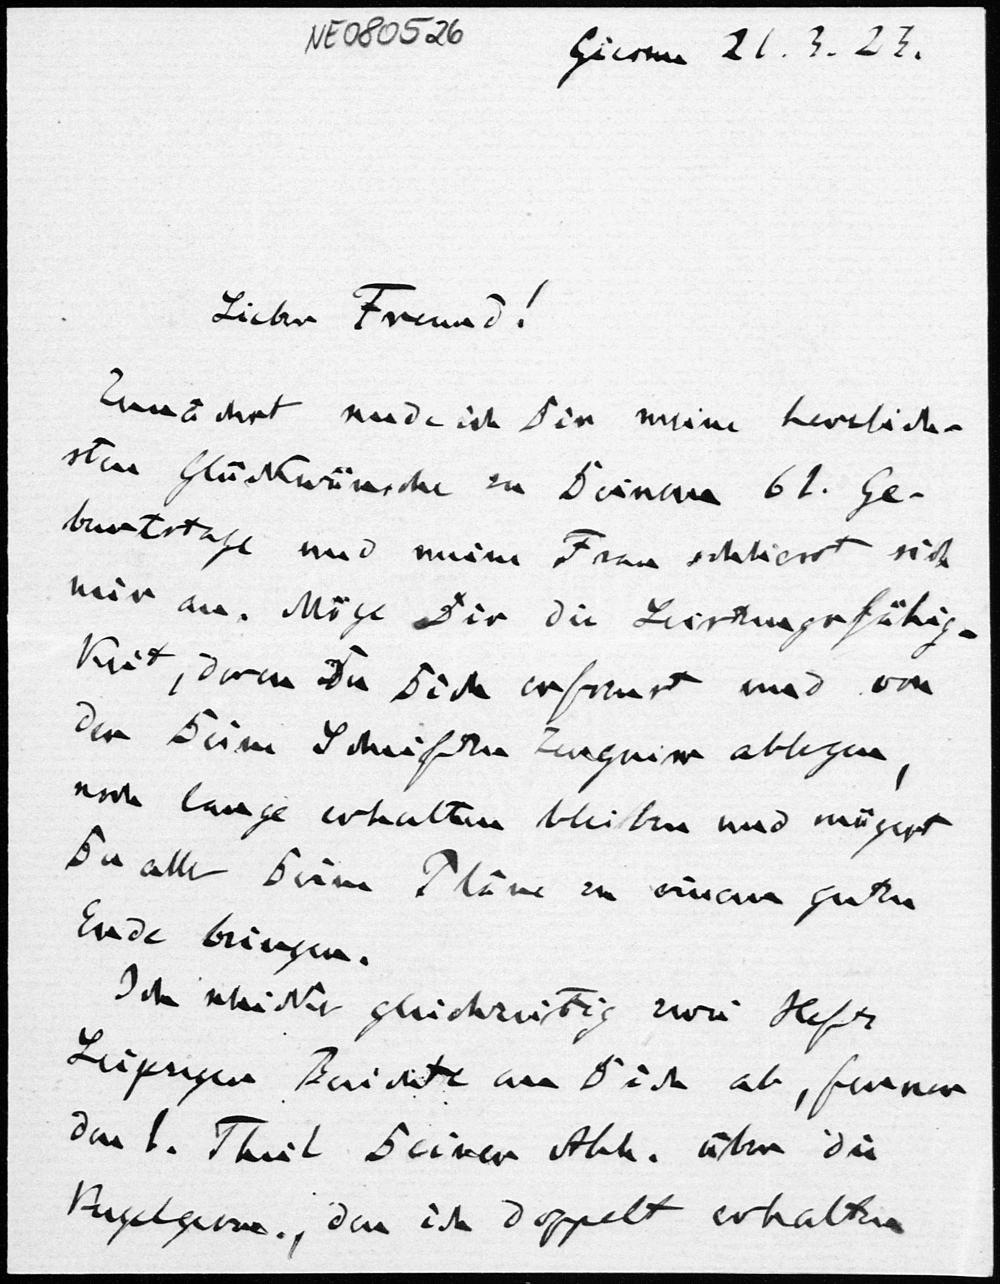 NE080526
Giessen 21. 3. 23.
Lieber Freund!
Zunächst sende ich Dir meine herzlich-
sten Glückwünsche zu Deinem 61. Ge-
burtstage und meine Frau schliesst sich
mir an. Möge Dir die Leistungsfähig-
keit, deren Du Dich erfreust und von
der Deine Schriften Zeugniss ablegen,
noch lange erhalten bleiben und mögest
Du alle Deine Pläne zu einem guten
Ende bringen.
Ich schickte gleichzeitig zwei Hefte
Leipziger Berichte an Dich ab, ferner
den 1. Theil Deiner Abh. über die
Kugelgeom., den ich doppelt erhalten